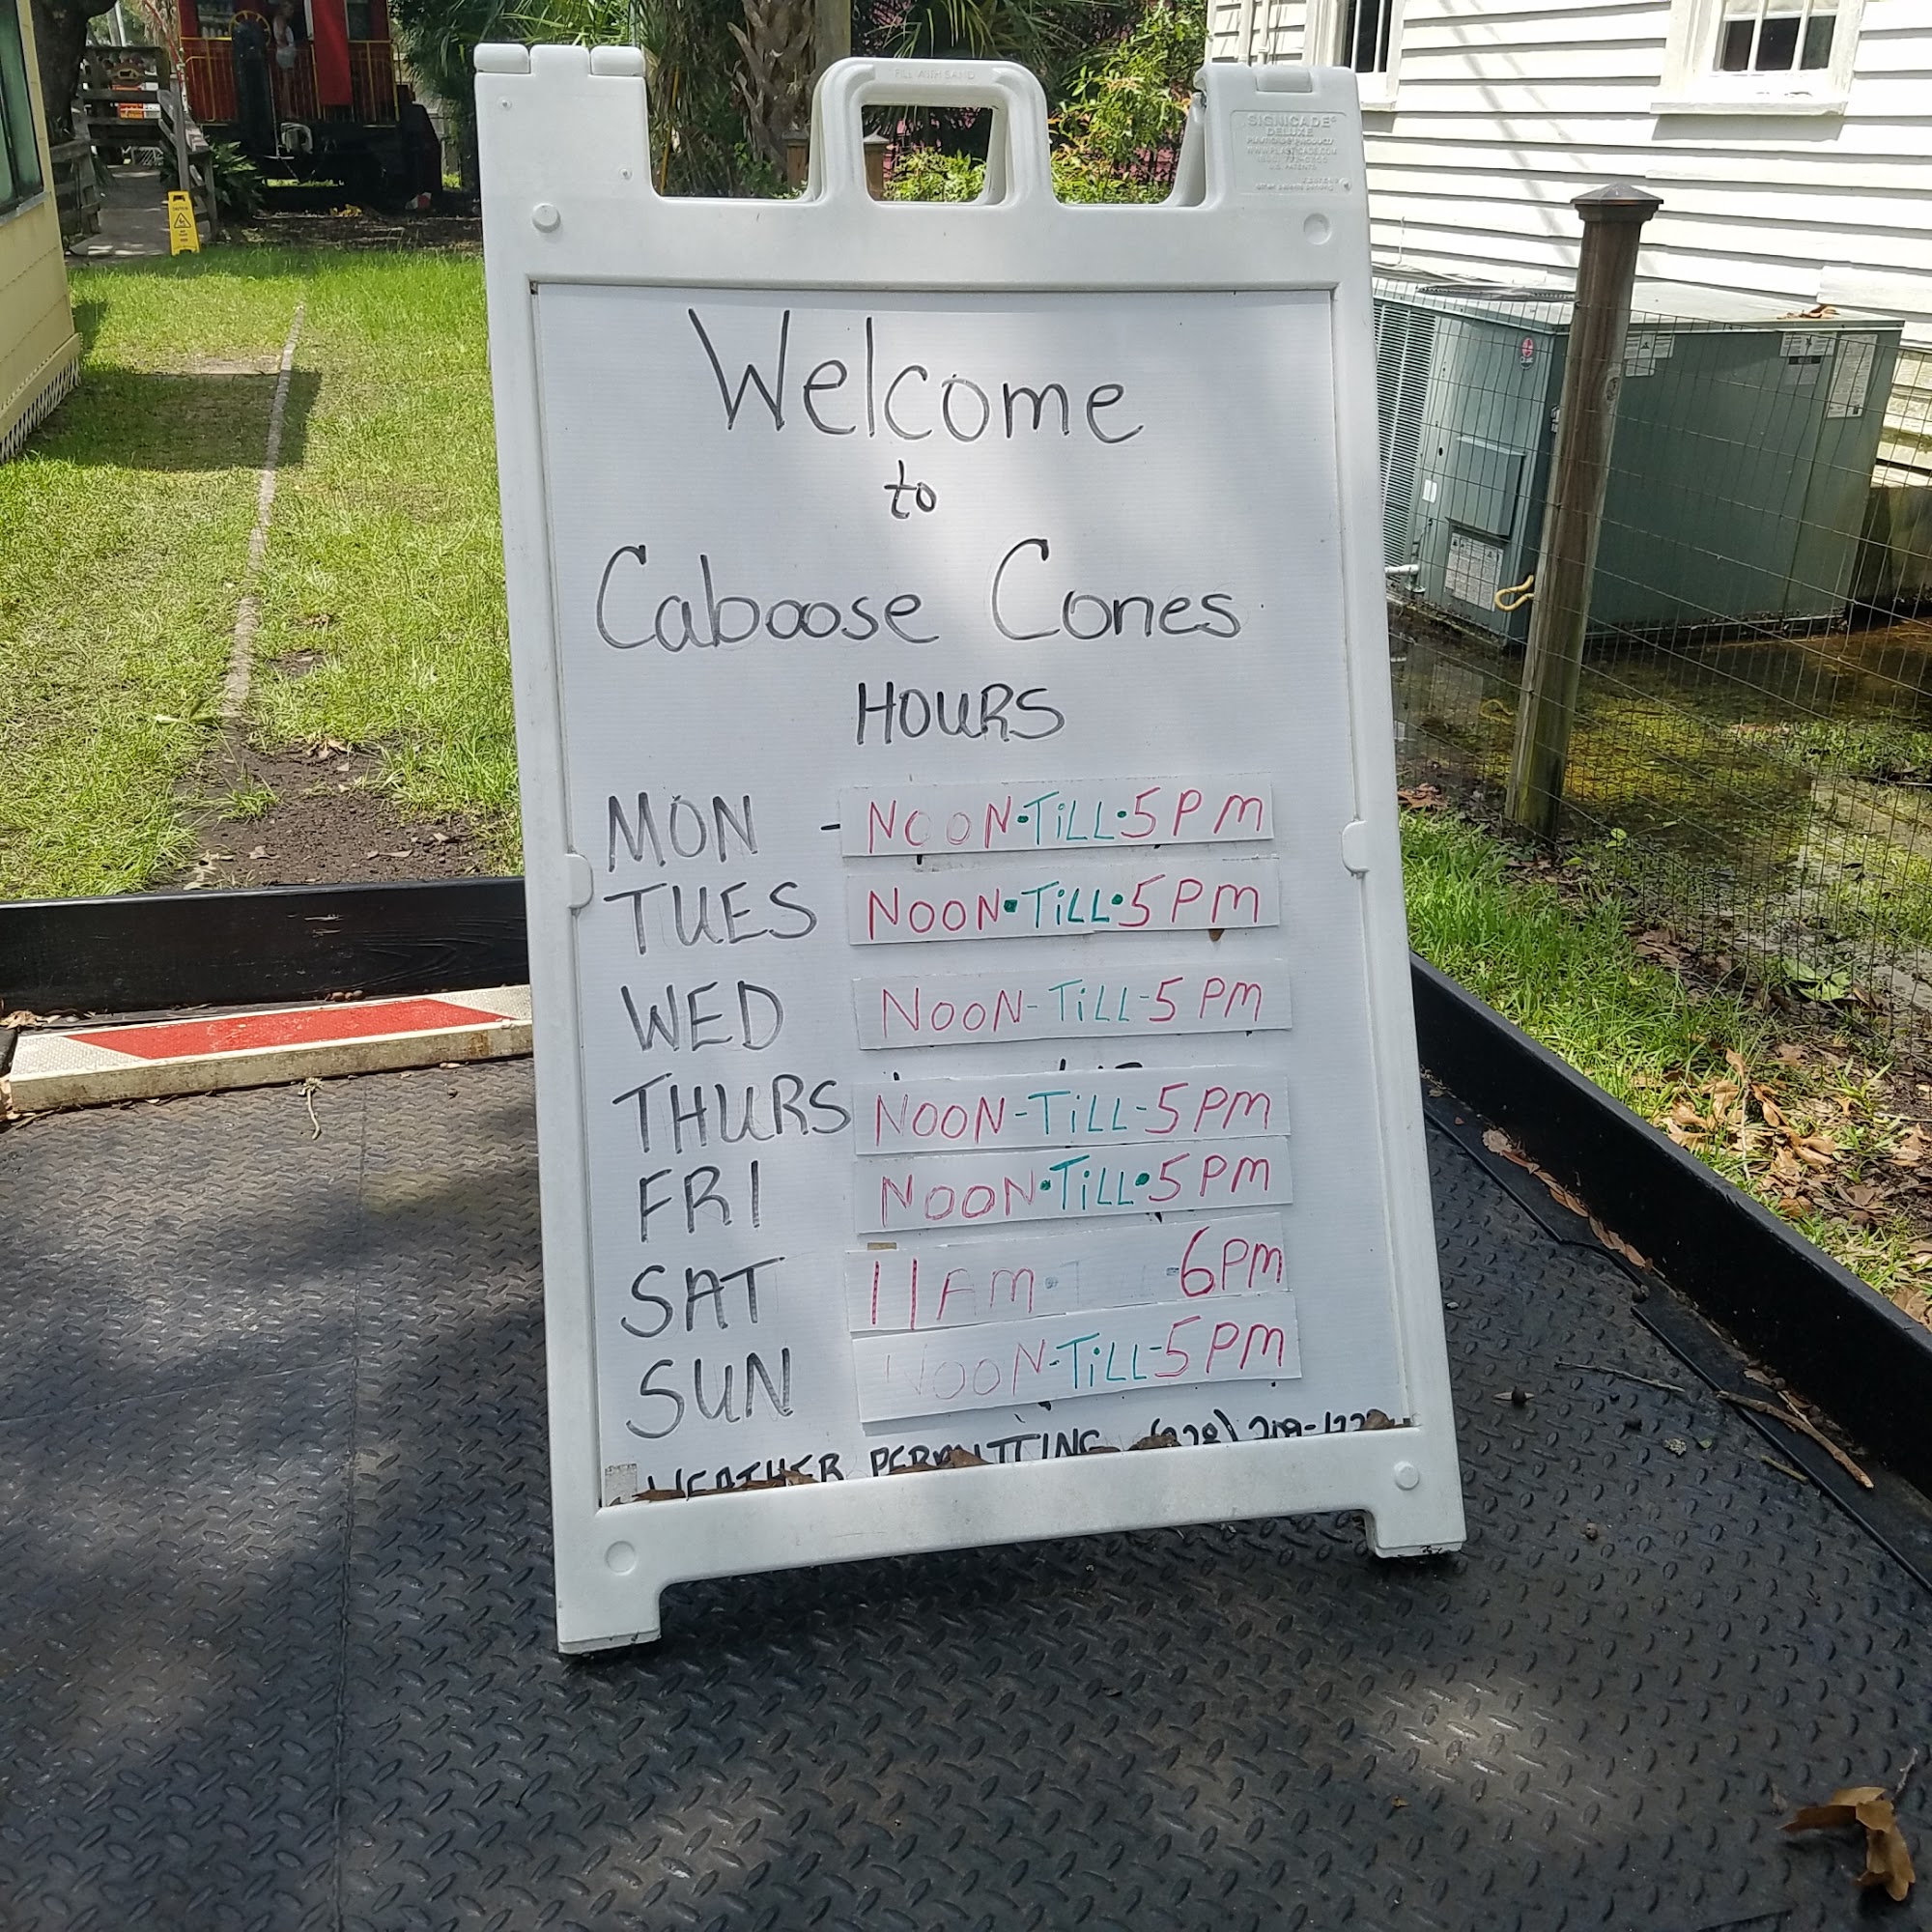 FILL WITH SAND
SIGNICADE®
DELUXE
Welcome
to
Caboose Cones
HOURS
MON - NOON•TiLL•5PM
TUES NOON•TiLL•5PM
WED NOON-TiLL-5PM
THURS NOON-TiLL-5PM
FRI NOON•TiLL•5PM
SAT 11AM 6PM
SUN NOON-TiLL-5PM
WEATHER PERMITTING